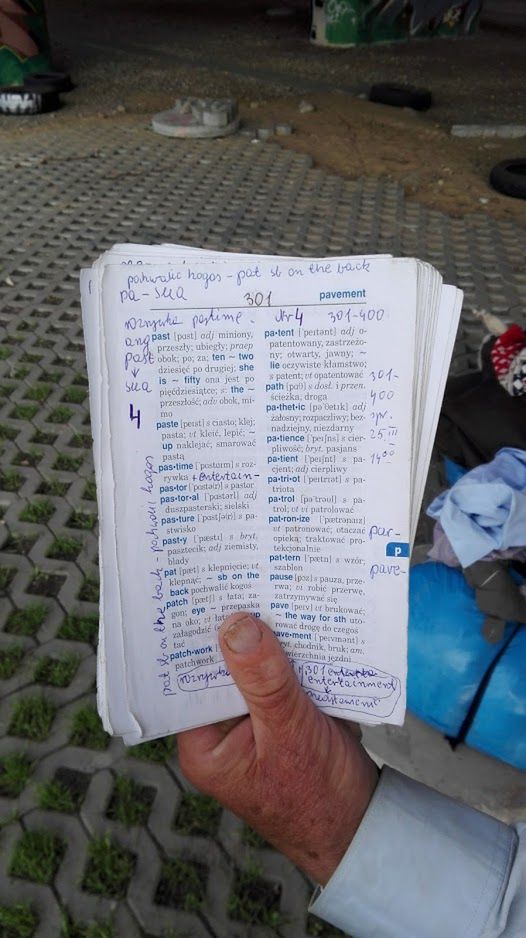 pochwalić kogoś - pat sb on the back
pa - SUA
301 pavement
rozrywka pastime. Nr 4 301-400
ang
past
↓
SUA
4
past [pɑst] adj miniony,
przeszły; ubiegły; praep
obok; po; za; ten ~ two
dziesięć po drugiej; she
is ~ fifty ona jest po
pięćdziesiątce; s: the ~
przeszłość; adv obok, mi-
mo
paste [peɪst] s ciasto; klej;
pasta; vt kleić, lepić; ~
up naklejać; smarować
pastą
pas•time [ˈpɑstaɪm] s roz-
rywka + entertain-
pas•tor [ˈpɑstə(r)] s pastor
pas•tor•al [ˈpɑstərl] adj
duszpasterski; sielski
pas•ture [ˈpɑstʃə(r)] s pa-
stwisko
past•y [ˈpæstɪ] s bryt.
pasztecik; adj ziemisty,
blady
pat [pæt] s klepnięcie; vt
klepnąć; ~ sb on the
back pochwalić kogoś
patch [pætʃ] s łata; za-
gon; eye ~ przepaska
na oko; vt łatać
załagodzić
tać
patch•work
patchwork
pat sb on the back - pochwalić kogoś
pa•tent [ˈpeɪtənt] adj o-
patentowany, zastrzeżo-
ny; otwarty, jawny; ~
lie oczywiste kłamstwo;
s patent; vt opatentować
path [pɑθ] s dosł. i przen.
ścieżka, droga
pa•thet•ic [pəˈθetɪk] adj
żałosny; rozpaczliwy; bez-
nadziejny, niezdarny
pa•tience [ˈpeɪʃns] s cier-
pliwość; bryt. pasjans
pa•tient [ˈpeɪʃnt] s pa-
cjent; adj cierpliwy
pat•ri•ot [ˈpeɪtrɪət] s pa-
triota
pa•trol [pəˈtrəʊl] s pa-
trol; vt vi patrolować
pat•ron•ize [ˈpætrənaɪz]
vt patronować; otaczać
opieką; traktować pro-
tekcjonalnie
pat•tern [ˈpætn] s wzór;
szablon
pause [pɔz] s pauza, prze-
rwa; vi robić przerwę,
zatrzymywać się
pave [peɪv] vt brukować;
~ the way for sth uto-
rować drogę do czegoś
pave•ment [ˈpeɪvmənt] s
bryt. chodnik, bruk; am.
nawierzchnia jezdni
301-
400
spr.
25 III
14⁰⁰
par-
p
pave-
rozrywka
301
entertainment
↓